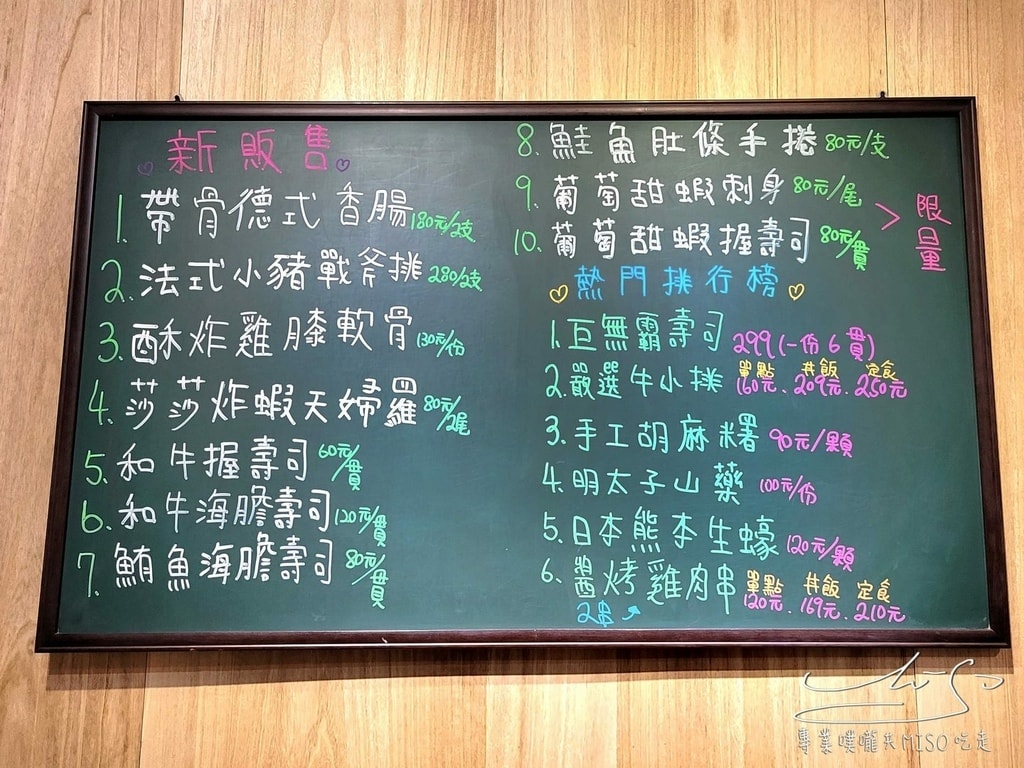 新販售
1. 帶骨德式香腸 180元/支
2. 法式小豬戰斧排 280/支
3. 酥炸雞膝軟骨 130元/份
4. 莎莎炸蝦天婦羅 80元/2尾
5. 和牛握壽司 60元/貫
6. 和牛海膽壽司 120元/貫
7. 鮪魚海膽壽司 80元/貫
8. 鮭魚肚條手捲 80元/支
9. 葡萄甜蝦刺身 80元/尾
10. 葡萄甜蝦握壽司 80元/貫
> 限量
熱門排行榜
1. 巨無霸壽司 299(一份6貫)
2. 嚴選牛小排 單點 丼飯 定食
160元、209元、250元
3. 手工胡麻糬 90元/顆
4. 明太子山藥 100元/份
5. 日本熊本生蠔 120元/顆
6. 醬烤雞肉串 單點 丼飯 定食
120元、169元、210元
2串
專業噗嚨共MISO吃走